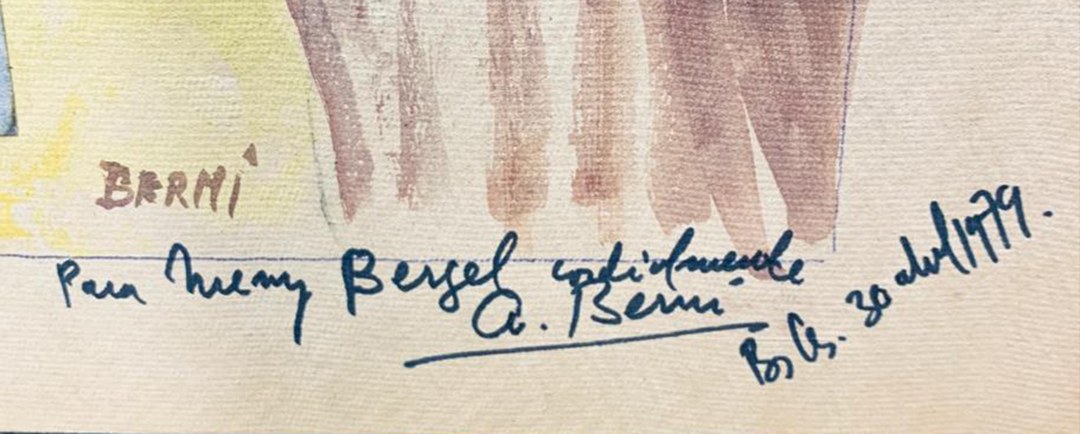 BERNI
Para Bergel cordialmente
A. Berni
Bs As. 30 abril/1979.